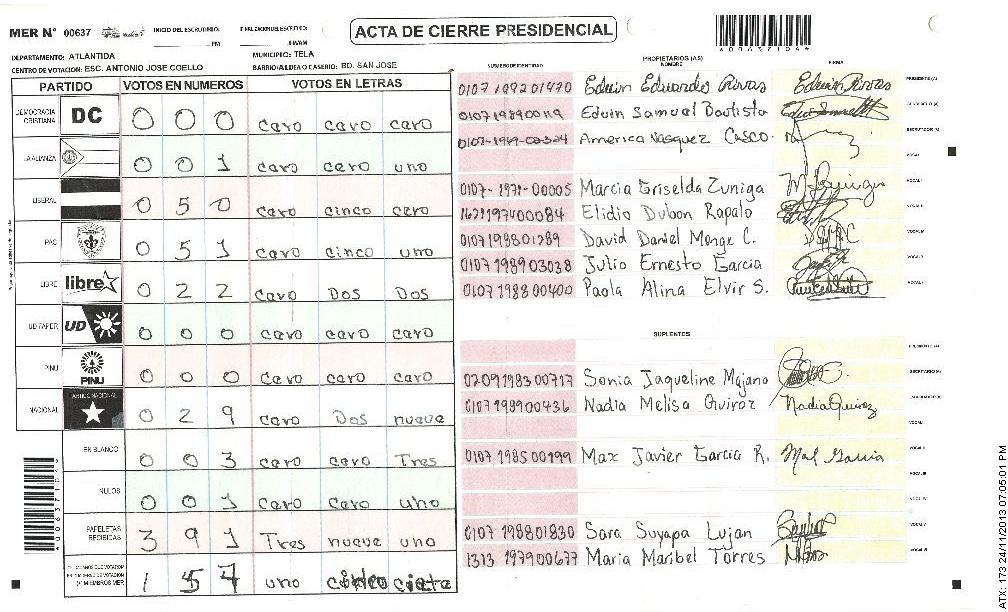 MER N° 00637
INICIO DEL ESCRUTINIO:
PM
ACTA DE CIERRE PRESIDENCIAL
A00637104
DEPARTAMENTO: ATLANTIDA
MUNICIPIO: TELA
CENTRO DE VOTACION: ESC. ANTONIO JOSE COELLO
BARRIO/ALDEA O CASERIO: BD. SAN JOSE
PARTIDO VOTOS EN NUMEROS VOTOS EN LETRAS
DEMOCRACIA CRISTIANA DC 0 0 0 cero cero cero
LA ALIANZA 0 0 1 cero cero uno
LIBERAL 0 5 0 cero cinco cero
PAC 0 5 1 cero cinco uno
LIBRE libre 0 2 2 cero Dos Dos
UD FAPER UD 0 0 0 cero cero cero
PINU PINU 0 0 0 cero cero cero
NACIONAL 0 2 9 cero Dos nueve
EN BLANCO 0 0 3 cero cero Tres
NULOS 0 0 1 cero cero uno
PAPELETAS RECIBIDAS 3 9 1 Tres nueve uno
1 5 7 uno cinco ciete
NUMERO DE IDENTIDAD PROPIETARIOS (AS) NOMBRE FIRMA
0107199201470 Edwin Eduardo Rivas Edwin Rivas PRESIDENTE (A)
0107198900119 Edwin Samuel Bautista
America Vasquez Casco
0107-1971-00005 Marcia Griselda Zuniga
1621197400084 Elidio Dubon Rapalo
0107198801289 David Daniel Monge C.
0107198903038 Julio Ernesto Garcia
0107198800400 Paola Alina Elvir S.
SUPLENTES
PRESIDENTE (A)
0209198300717 Sonia Jaqueline Majano SECRETARIO (A)
0107198900436 Nadia Melisa Quiroz Nadia Quiroz
0107198500199 Max Javier Garcia R.
0107198801830 Sara Suyapa Lujan
1313197900677 Maria Maribel Torres
ATX: 173 24/11/2013 07:05:01 PM